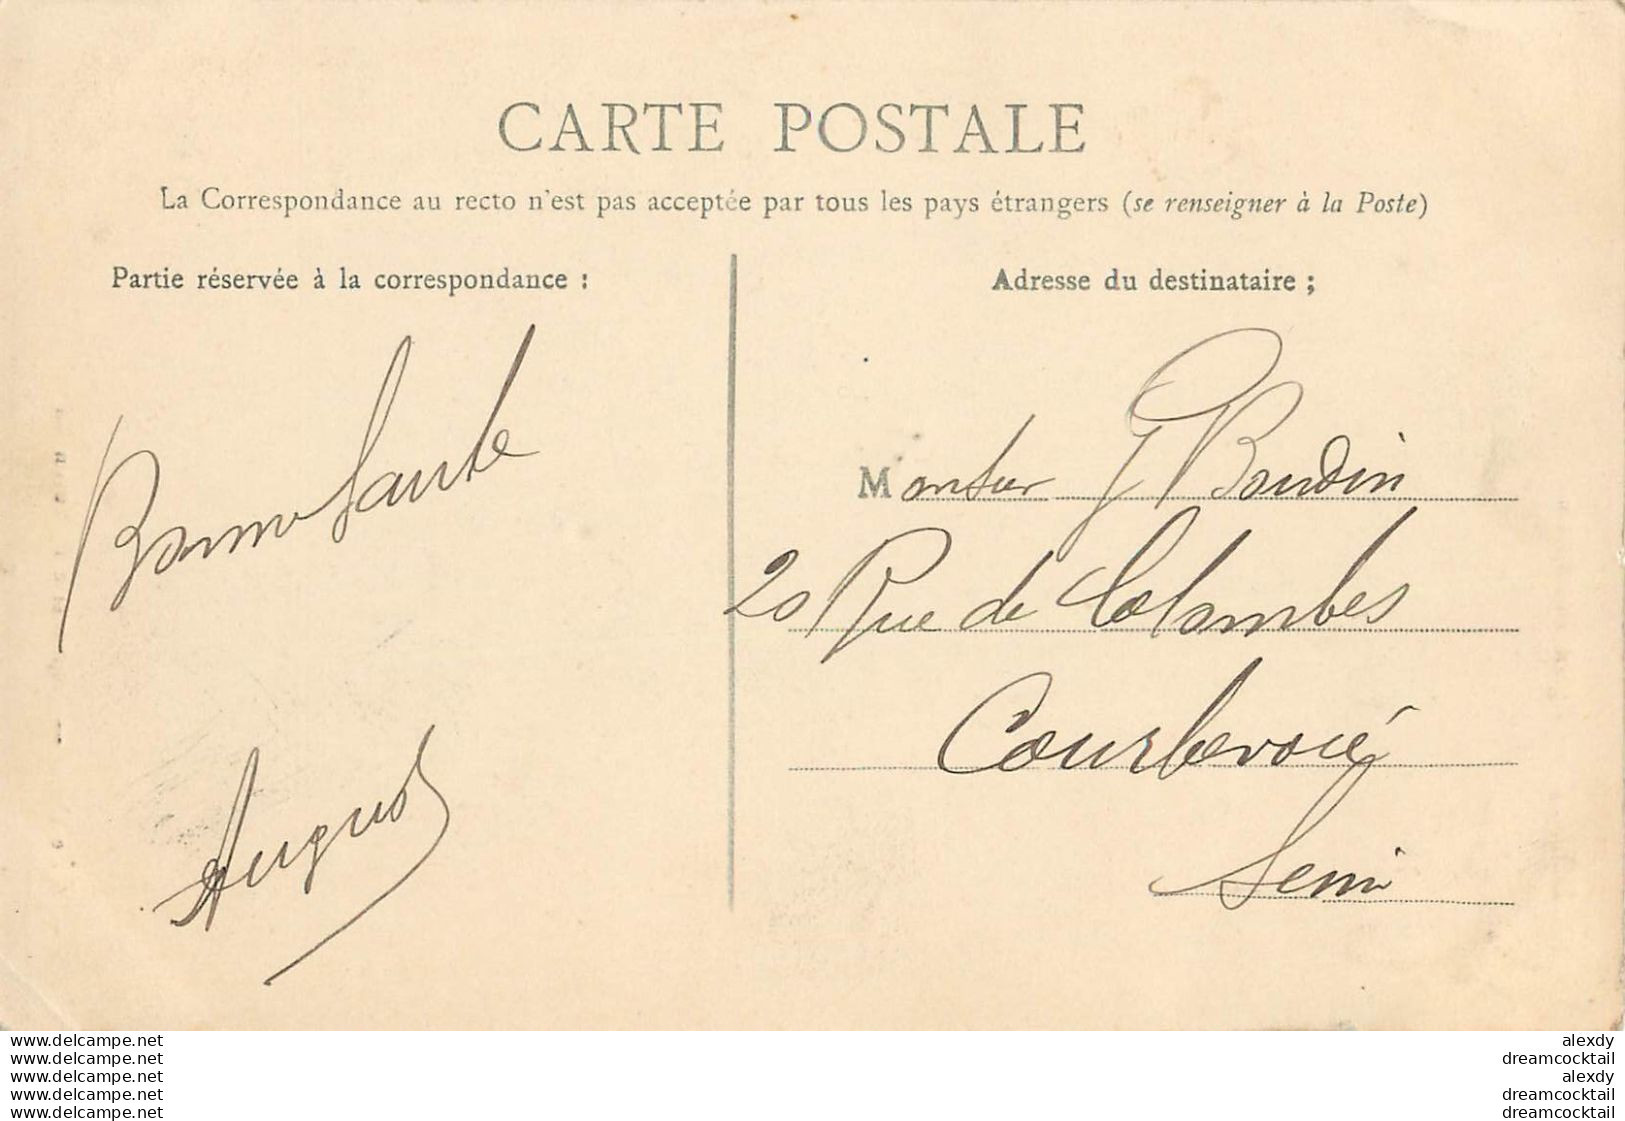 CARTE POSTALE
La Correspondance au recto n'est pas acceptée par tous les pays étrangers (se renseigner à la Poste)
Partie réservée à la correspondance :
Bonne Santé
August
Adresse du destinataire ;
Monsieur G Boudin
20 Rue de Colombes
Courbevoie
Seine
www.delcampe.net
www.delcampe.net
www.delcampe.net
www.delcampe.net
www.delcampe.net
alexdy
dreamcocktail
alexdy
dreamcocktail
dreamcocktail